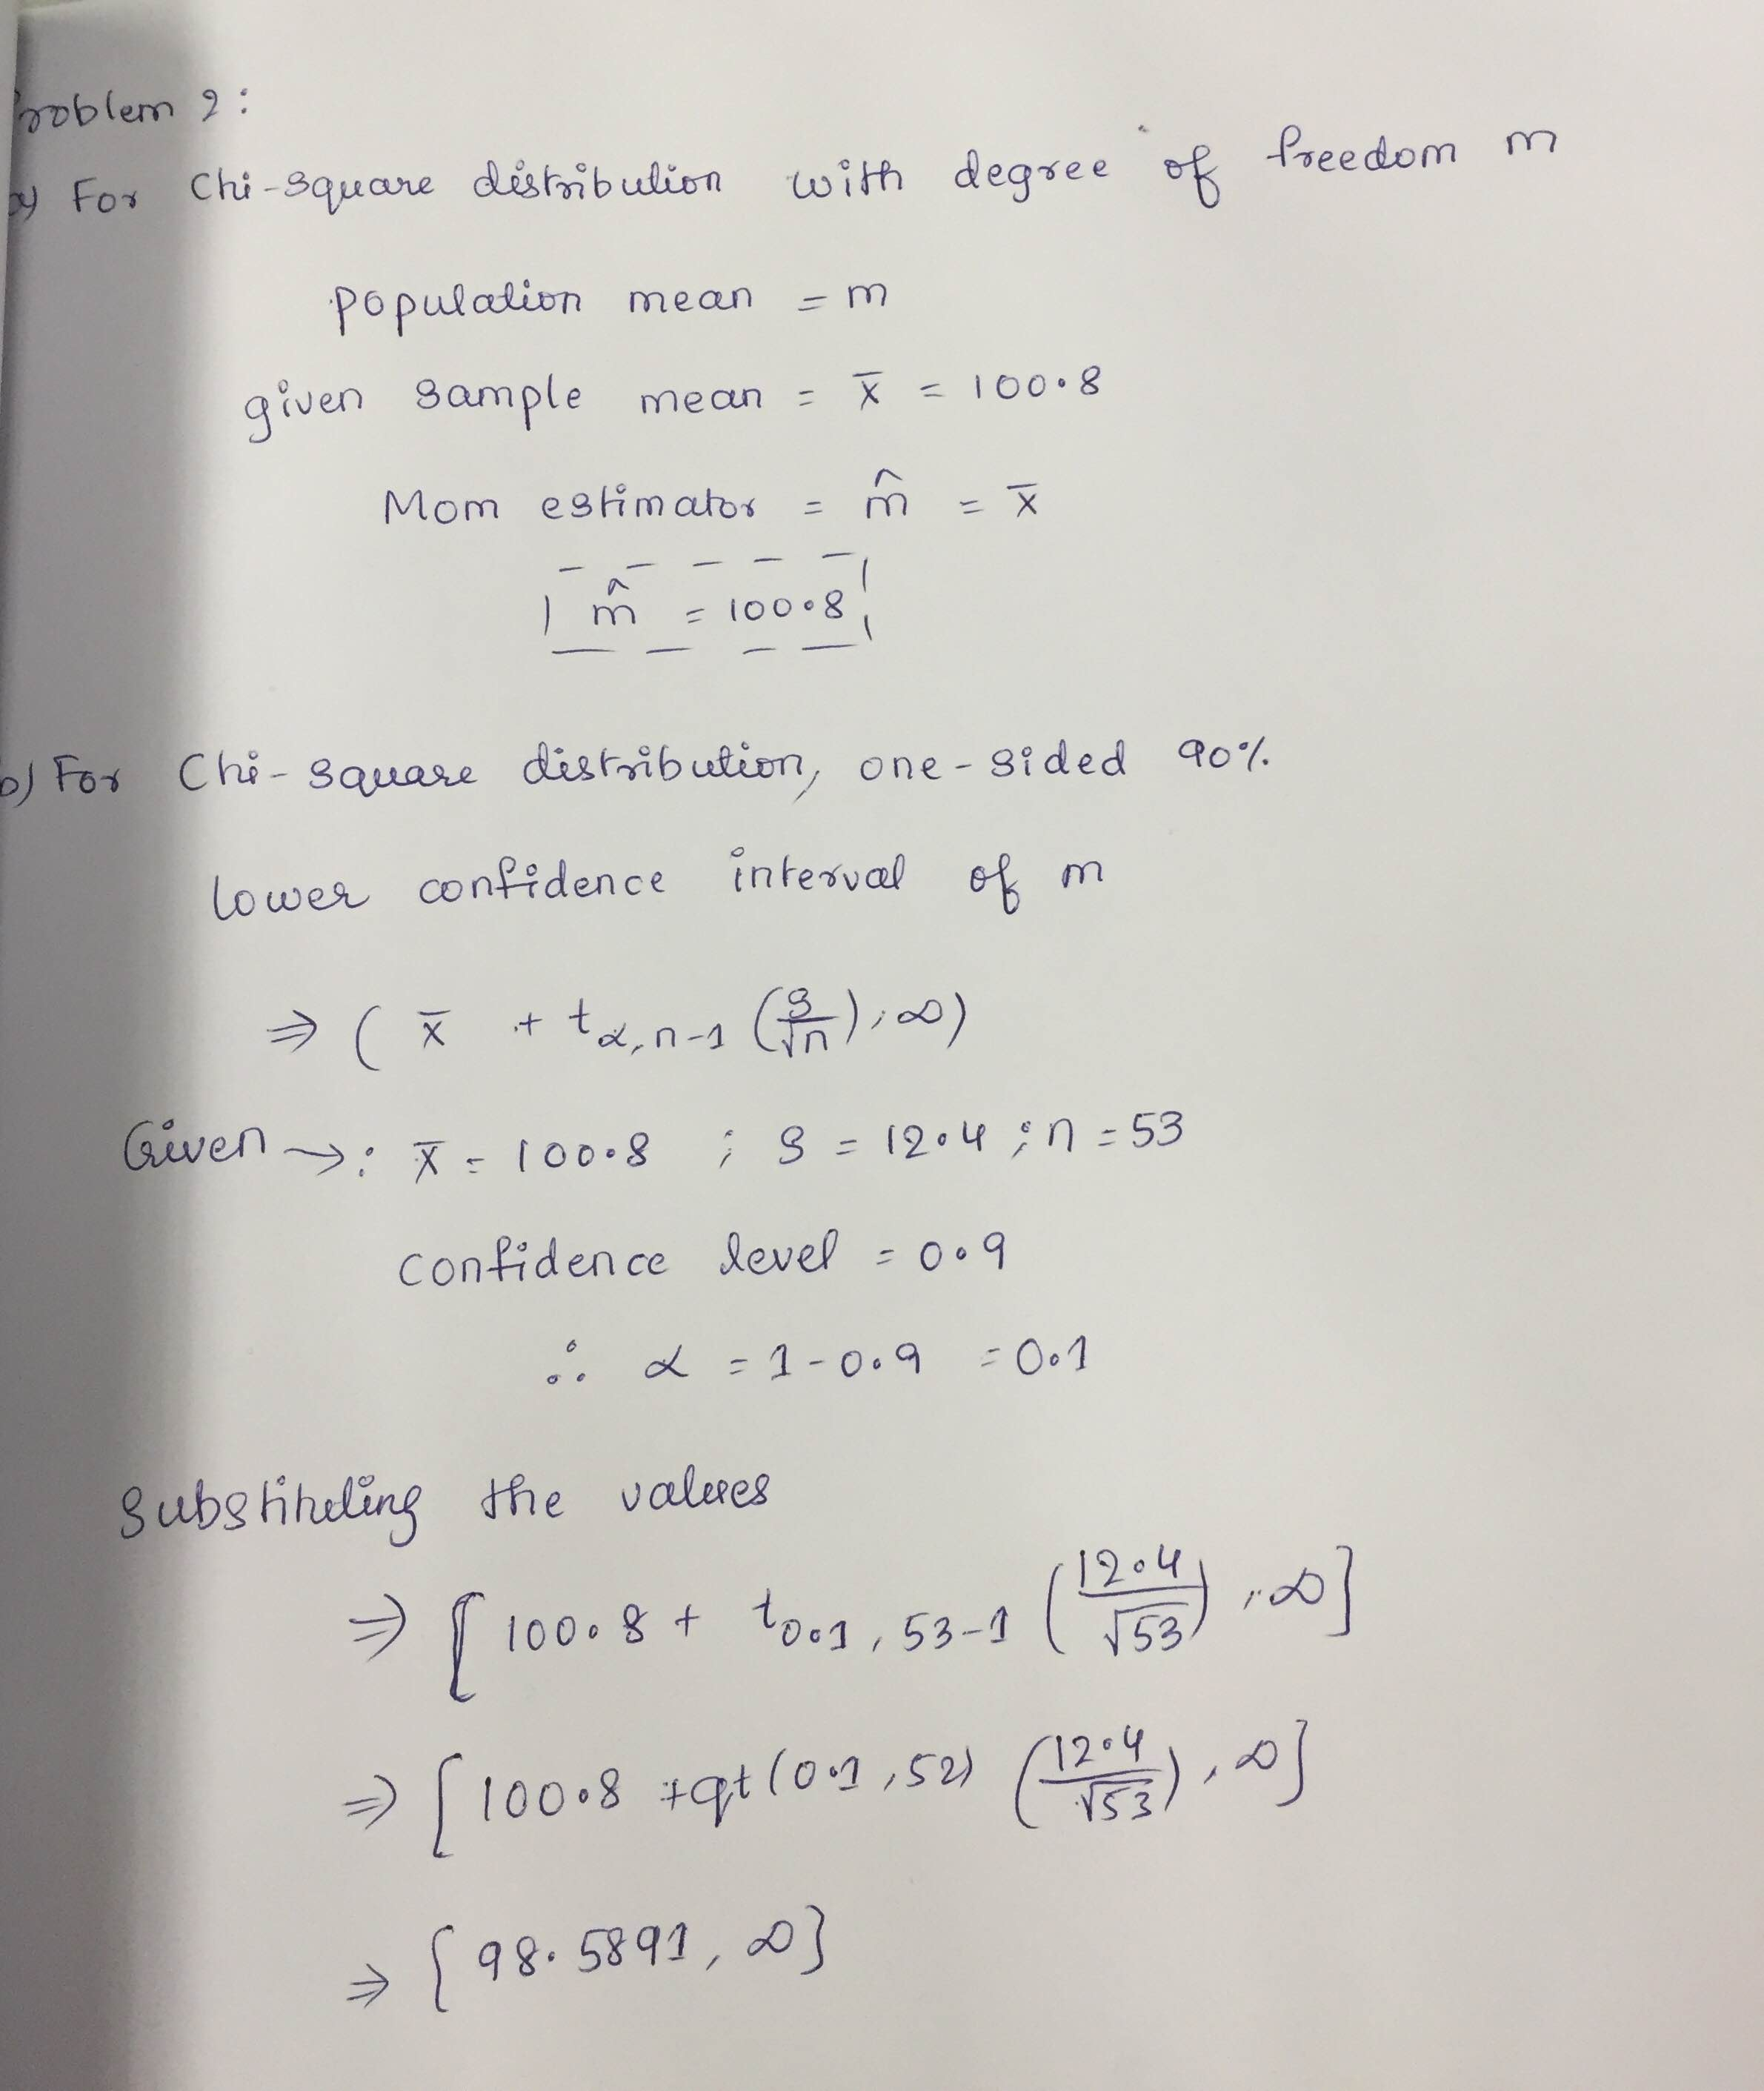 Problem 2:
a) For Chi-square distribution with degree of freedom m
population mean = m
given sample mean = x̄ = 100.8
Mom estimator = m̂ = x̄
m̂ = 100.8
b) For Chi-square distribution, one-sided 90%
lower confidence interval of m
⇒ ( x̄ + t_{α, n-1} (s/√n), ∞)
Given →: x̄ = 100.8 ; s = 12.4 ; n = 53
confidence level = 0.9
∴ α = 1-0.9 = 0.1
substituting the values
⇒ [100.8 + t_{0.1, 53-1} (12.4/√53), ∞]
⇒ [100.8 + qt(0.1, 52) (12.4/√53), ∞]
⇒ [98.5891, ∞]